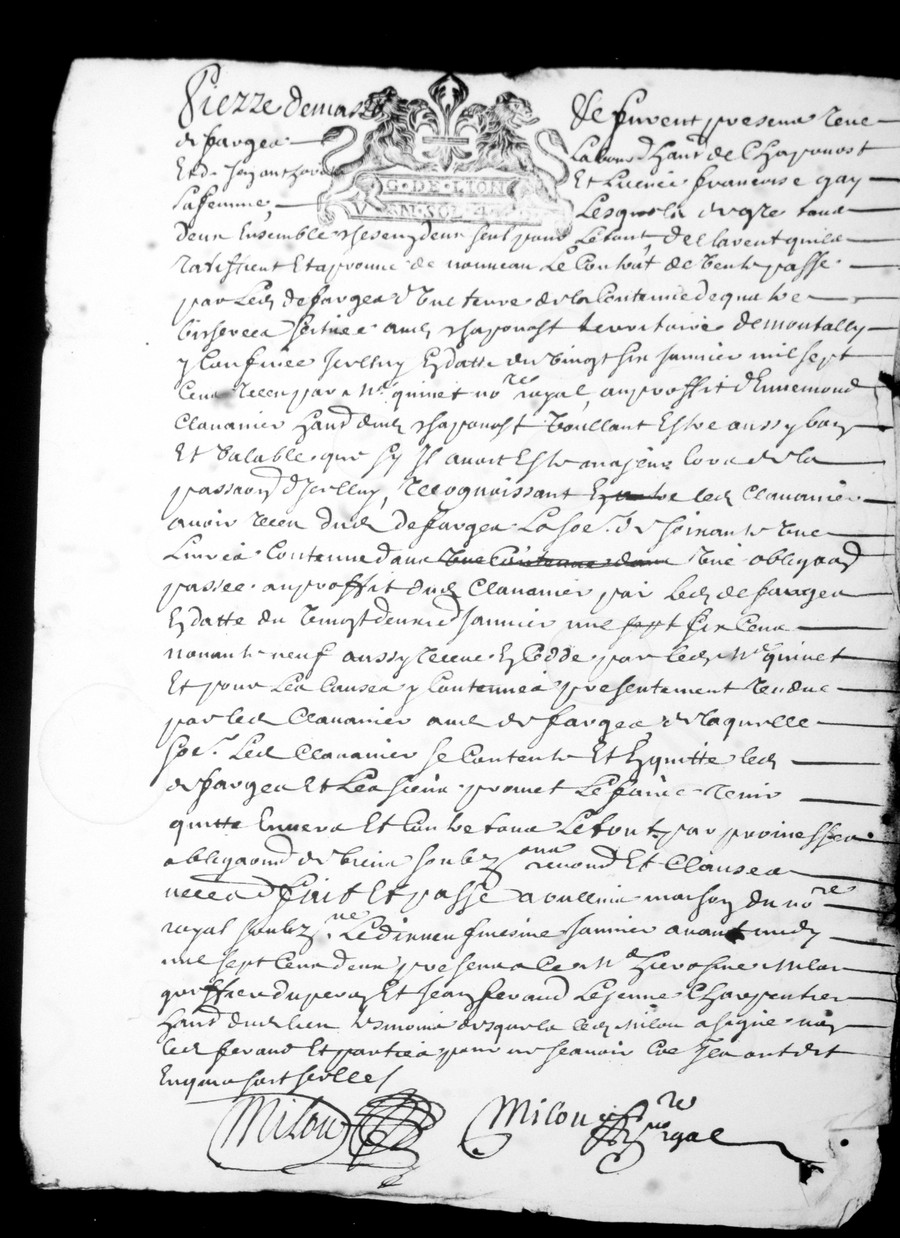 Pierre demas
de farges
Et d.
sa femme,
G·DE·LION
SOL·4
Se furent presens rene
habitant de Chaponost
Et Lucrece francoise gay
Lesquels de gre tous
deux Ensemble chescung deux seul pour Le tout declarent quils
ratiffient Et aprouve de nouveau Le Contrat de vente passe
par Led defarges d'une terre de la Contenue de quatre
bicherees scituee aud chaponost territoire de montally
y Confinee Icelluy En datte du vingt six Janvier mil sept
Cens receu par Me quinet nore royal, au proffit d'Ennemond
Clavanier habt dud chaponost voullant Estre aussy bon
Et valable que sy Il avoit Este majeur lors de la
passaon d'Icelluy, recognoissant led Clavanier
avoir receu dud defarges La soe. de soixante une
Livres Contenue dans une obligaon
passee au proffit dud Clavanier par Led de farges
En datte du vingt deuxie Janvier mil six Cens
nonante neuf aussy receue Et Cedde par led Me quinet
Et pour Les Causes y Contenues presentement rendue
par led Clavanier aud de farges de laquelle
soe. Led Clavanier se Contente Et En quitte led
de farges Et Les siens promet Le faire tenir
quitte Envers Et Contre tous Le tout par promesses
obligaons de biens soubz renonons Et Clauses
neccess fait Et passe a vullin maison du nore
royal soubzne Le dix neufviesme Janvier avant midy
mil sept Cens deux presens a Ce Me hierosme milon
greffier du peras Et Jean ferand Lejeune Charpentier
habt dud lieu tesmoins desquels led milon a signe non
led ferand Et parties pour ne scavoir Ce Ils ont dit
Enquis sort scelles
Milon
Milon nore rgal